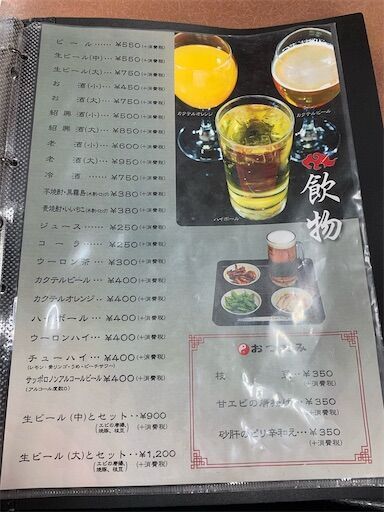 ビール……¥550(+消費税)
生ビール(中)…¥550(+消費税)
生ビール(大)…¥750(+消費税)
お酒(小)…¥450(+消費税)
お酒(大)…¥750(+消費税)
紹興酒(小)…¥600(+消費税)
紹興酒(大)…¥800(+消費税)
老酒(小)…¥600(+消費税)
老酒(大)…¥950(+消費税)
冷酒……¥750(+消費税)
芋焼酎・黒霧島(水割・ロック)¥380(+消費税)
麦焼酎・いいちこ(水割・ロック)¥380(+消費税)
ジュース……¥250(+消費税)
コーラ……¥250(+消費税)
ウーロン茶…¥300(+消費税)
カクテルビール…¥400(+消費税)
カクテルオレンジ…¥400(+消費税)
ハイボール…¥400(+消費税)
ウーロンハイ…¥400(+消費税)
チューハイ…¥400(+消費税)
(レモン・青リンゴ・うめ・ピーチサワー)
サッポロノンアルコールビール¥400
(アルコール度数0) (+消費税)
生ビール(中)とセット…¥900
(エビの唐揚、焼豚、枝豆) (+消費税)
生ビール(大)とセット…¥1,200
(エビの唐揚、焼豚、枝豆) (+消費税)
カクテルオレンジ
カクテルビール
ハイボール
飲物
おつまみ
枝豆…¥350
(+消費税)
甘エビの唐揚げ…¥350
(+消費税)
砂肝のピリ辛和え…¥350
(+消費税)